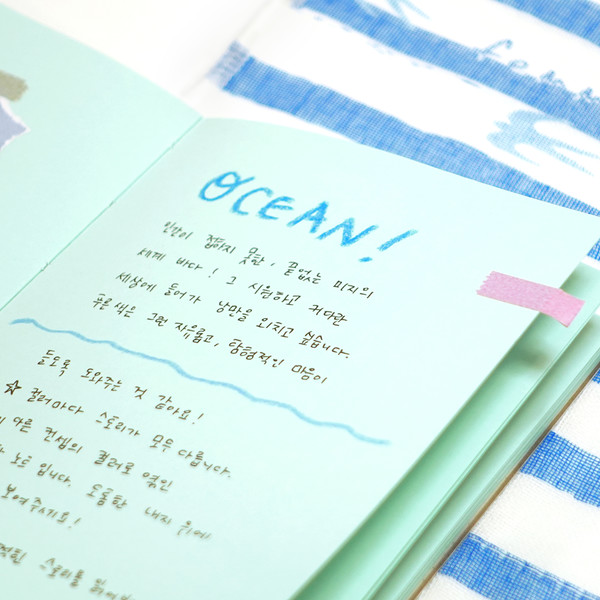 OCEAN!
인간이 잡아지 못할, 끝없는 미지의
세계 바다! 그 시원하고 커다란
세상에 들어가 낭만을 외치고 싶습니다.
푸른색은 그런 자유롭고, 탐험적인 마음이
들도록 도와주는 것 같아요!
☆ 컬러마다 스토리가 모두 다릅니다.
다른 컨셉의 컬러로 엮인
노트 입니다. 도톰한 내지 위에
보여주시기요!
스토리를